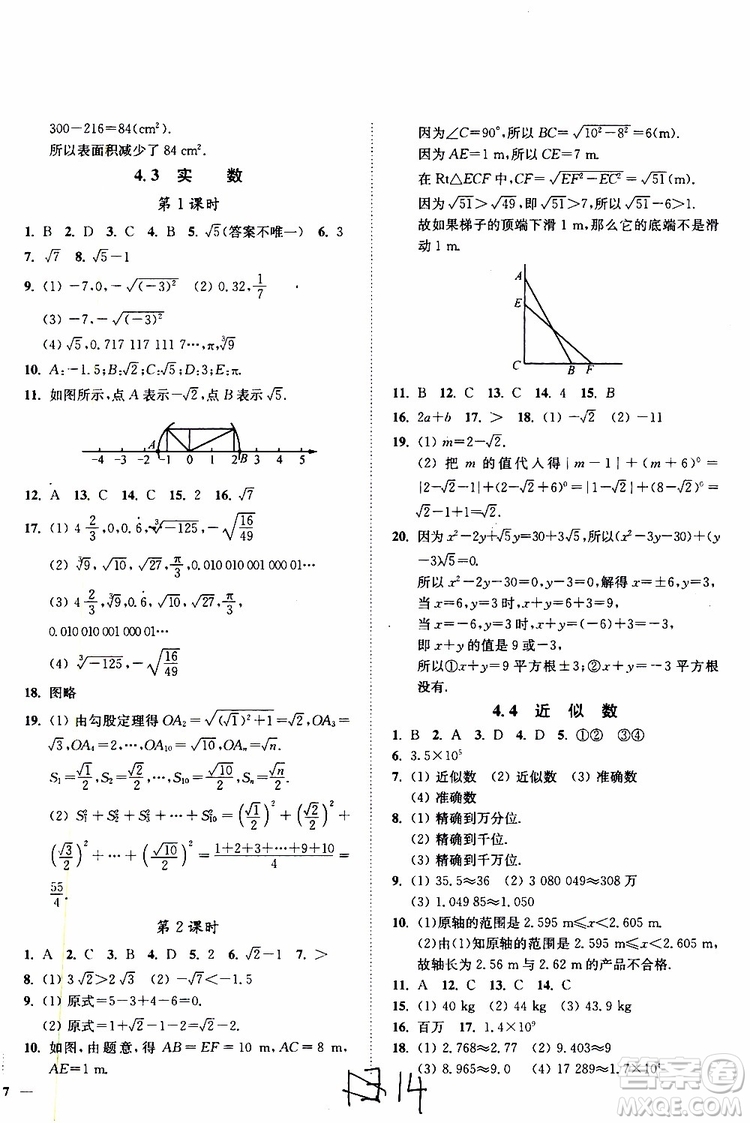 300－216＝84(cm²).
所以表面积减少了 84 cm².
4.3 实 数
第 1 课时
1. B 2. D 3. C 4. B 5. √5(答案不唯一) 6. 3
7. √7 8. √5－1
9. (1) －7,0,－√(－3)² (2) 0.32, 1/7
(3) －7,－√(－3)²
(4) √5,0.717 117 111 7…,π,∛9
10. A:－1.5;B:√2;C:√5;D:3;E:π
11. 如图所示,点 A 表示－√2,点 B 表示√5.
A B
－4 －3 －2 －1 0 1 2 3 4 5
12. A 13. C 14. C 15. 2 16. √7
17. (1) 4 2/3,0,0.6̇,∛－125,－√(16/49)
(2) ∛9,√10,√27,π/3,0.010 010 001 000 01…
(3) 4 2/3,∛9,0.6̇,√10,√27,π/3,
0.010 010 001 000 01…
(4) ∛－125,－√(16/49)
18. 图略
19. (1) 由勾股定理得 OA₂＝√((√1)²＋1)＝√2,OA₃＝
√3,OA₄＝√4＝2,…,OA₁₀＝√10,…,OAₙ＝√n.
S₁＝√1/2,S₂＝√2/2,…,S₁₀＝√10/2,Sₙ＝√n/2.
(2) S₁²＋S₂²＋S₃²＋…＋S₁₀²＝(√1/2)²＋(√2/2)²＋
(√3/2)²＋…＋(√10/2)²＝(1＋2＋3＋…＋9＋10)/4＝
55/4.
第 2 课时
1. A 2. C 3. B 4. C 5. C 6. √2－1 7. ＞
8. (1) 3√2＞2√3 (2) －√7＜－1.5
9. (1) 原式＝5－3＋4－6＝0.
(2) 原式＝1＋√2－1－√2＝0.
10. 如图,由题意,得 AB＝EF＝10 m,AC＝8 m,
AE＝1 m.
7 —
因为∠C＝90°,所以 BC＝√(10²－8²)＝6(m).
因为 AE＝1 m,所以 CE＝7 m.
在 Rt△ECF 中,CF＝√(EF²－EC²)＝√51(m).
因为√51＞√49,即√51＞7,所以√51－6＞1.
故如果梯子的顶端下滑 1 m,那么它的底端不是滑
动 1 m.
A
E
C B F
11. B 12. C 13. C 14. 4 15. B
16. 2a＋b 17. ＞ 18. (1) －√2 (2) －11
19. (1) m＝2－√2.
(2) 把 m 的值代人得|m－1|＋(m＋6)⁰＝
|2－√2－1|＋(2－√2＋6)⁰＝|1－√2|＋(8－√2)⁰＝
√2－1＋1＝√2.
20. 因为 x²－2y＋√5y＝30＋3√5,所以(x²－2y－30)＋(y
－3)√5＝0.
所以 x²－2y－30＝0,y－3＝0,解得 x＝±6,y＝3,
当 x＝6,y＝3 时,x＋y＝6＋3＝9,
当 x＝－6,y＝3 时,x＋y＝－6＋3＝－3,
即 x＋y 的值是 9 或－3.
所以①x＋y＝9 平方根是±3;②x＋y＝－3 平方根
没有.
4.4 近 似 数
1. B 2. D 3. A 4. D 5. ①② ③④
6. 3.5×10⁵
7. (1) 近似数 (2) 近似数 (3) 准确数
(4) 准确数
8. (1) 精确到万分位.
(2) 精确到千位.
(3) 精确到千万位.
9. (1) 35.5≈36 (2) 3 080 049.01≈308万
(3) 1.049 85≈1.050
10. (1)原轴的范围是 2.595 m≤x＜2.605 m.
(2)由(1)知原轴的范围是 2.595 m≤x＜2.605 m,
故轴长为 2.56 m与 2.62 m 的产品不合格.
11. A 12. C 13. C 14. C
15. (1) 40 kg (2) 44 kg (3) 43.9 kg
16. 百万 17. 1.4×10⁹
18. (1) 2.768≈2.77 (2) 8.972≈8.97
(3) 8.965≈9.0 (4) 17 289≈1.7×10⁴
14
答案圈